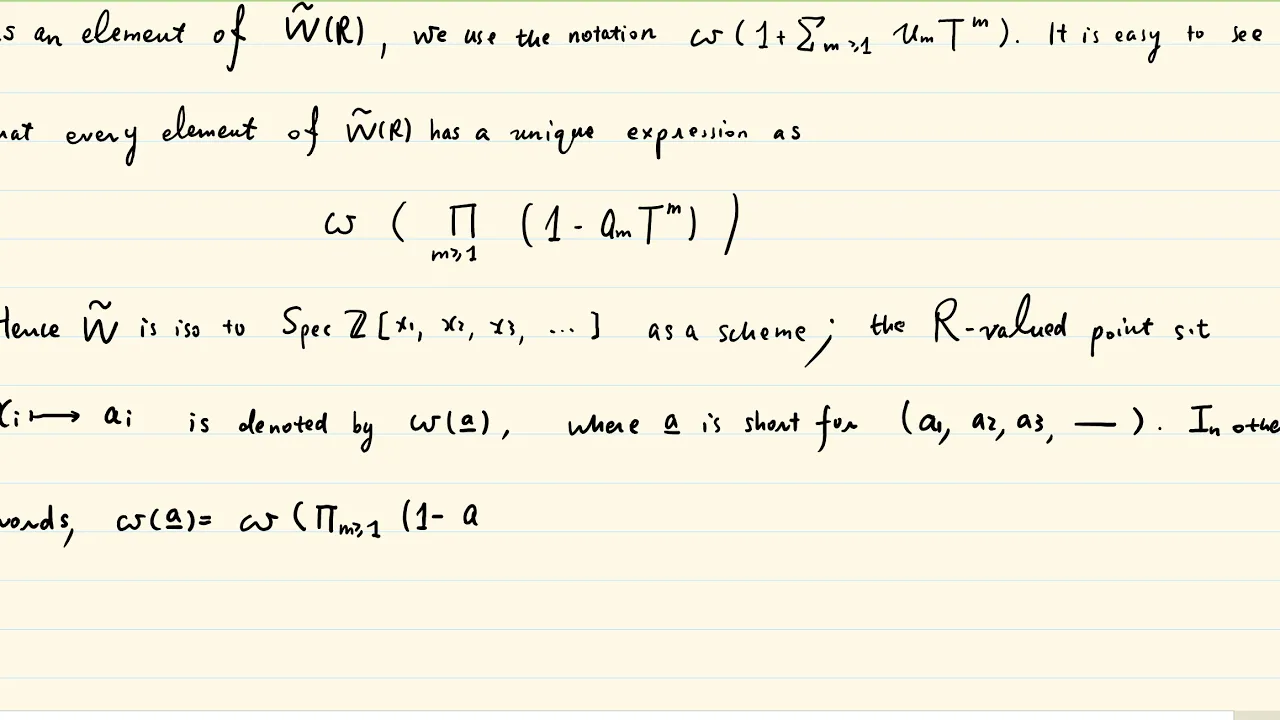 s an element of W̃(R), we use the notation ω(1+∑_{m≥1} u_m T^m). It is easy to see
hat every element of W̃(R) has a unique expression as
ω ( ∏_{m≥1} (1 - a_m T^m) )
Hence W̃ is iso to Spec ℤ[x_1, x_2, x_3, ...] as a scheme; the R-valued point s.t
x_i ⟼ a_i is denoted by ω(a̲), where a̲ is short for (a_1, a_2, a_3, —). In othe
words, ω(a̲)= ω (∏_{m≥1} (1- a